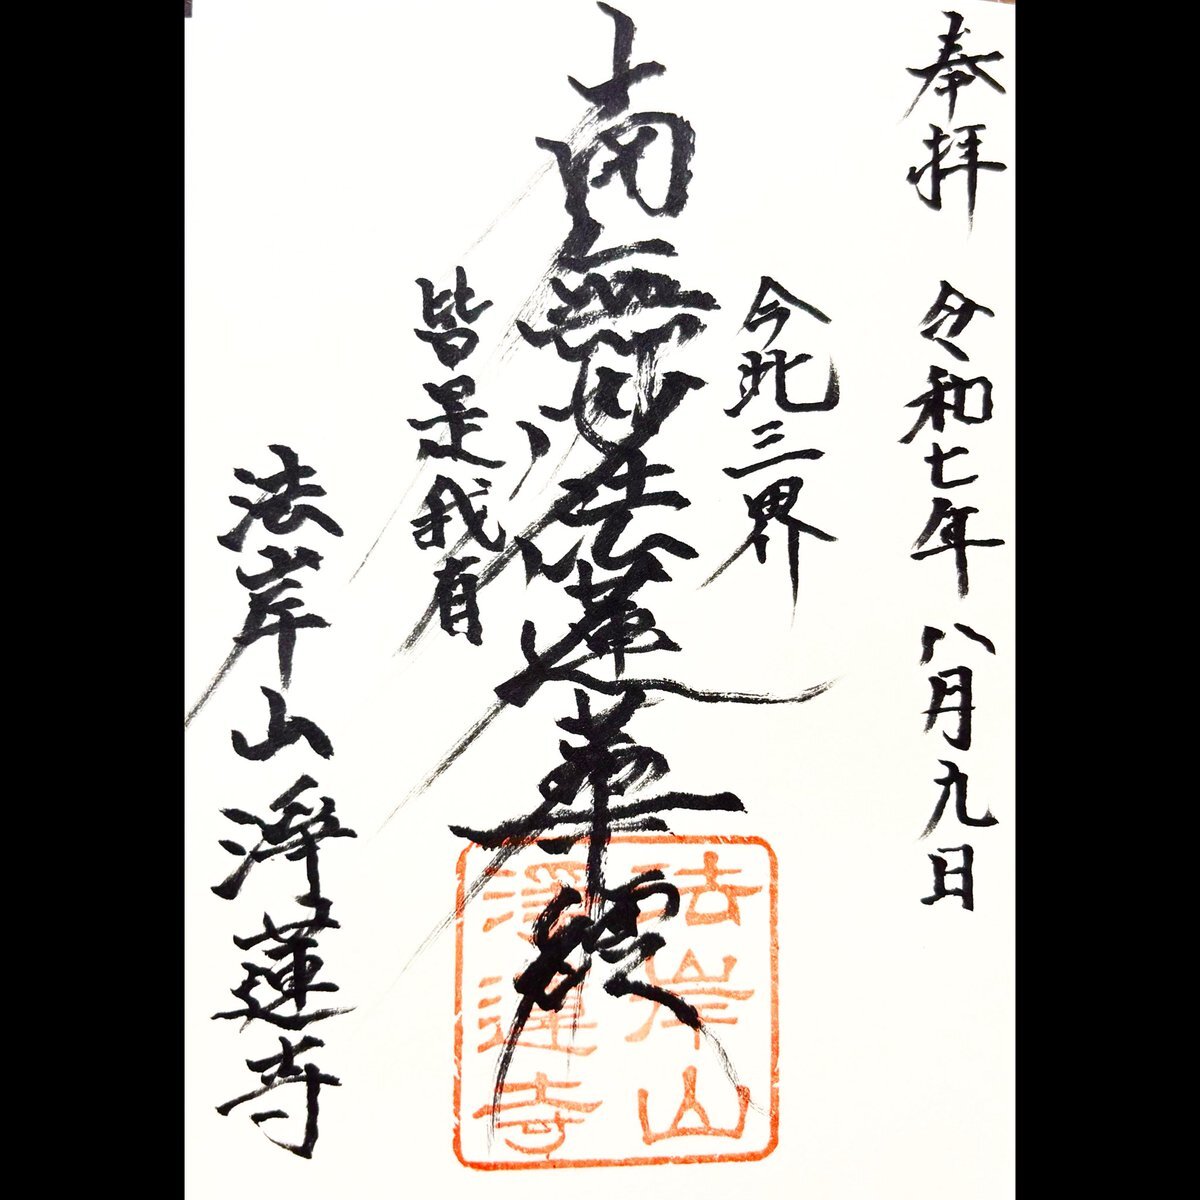 奉拝 令和七年八月九日
今此三界
南無妙法蓮華経
皆是我有
法岸山淨蓮寺
法岸山
淨蓮寺